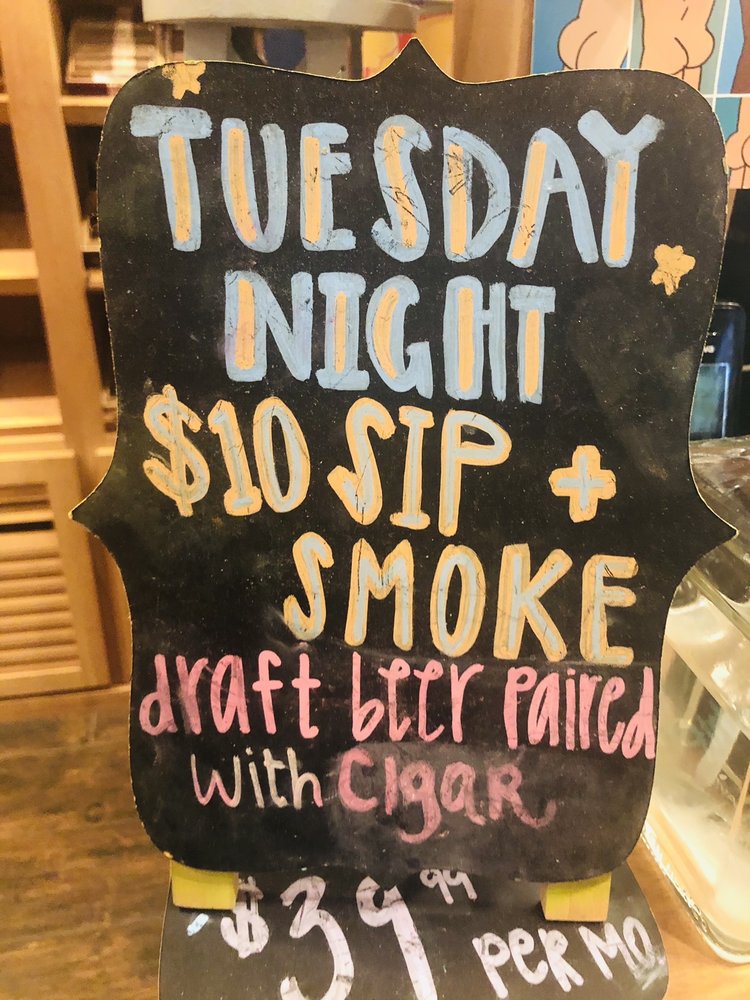 TUESDAY
NIGHT
$10 SIP +
SMOKE
draft beer paired
with CIgaR
$39 99 PER MO.